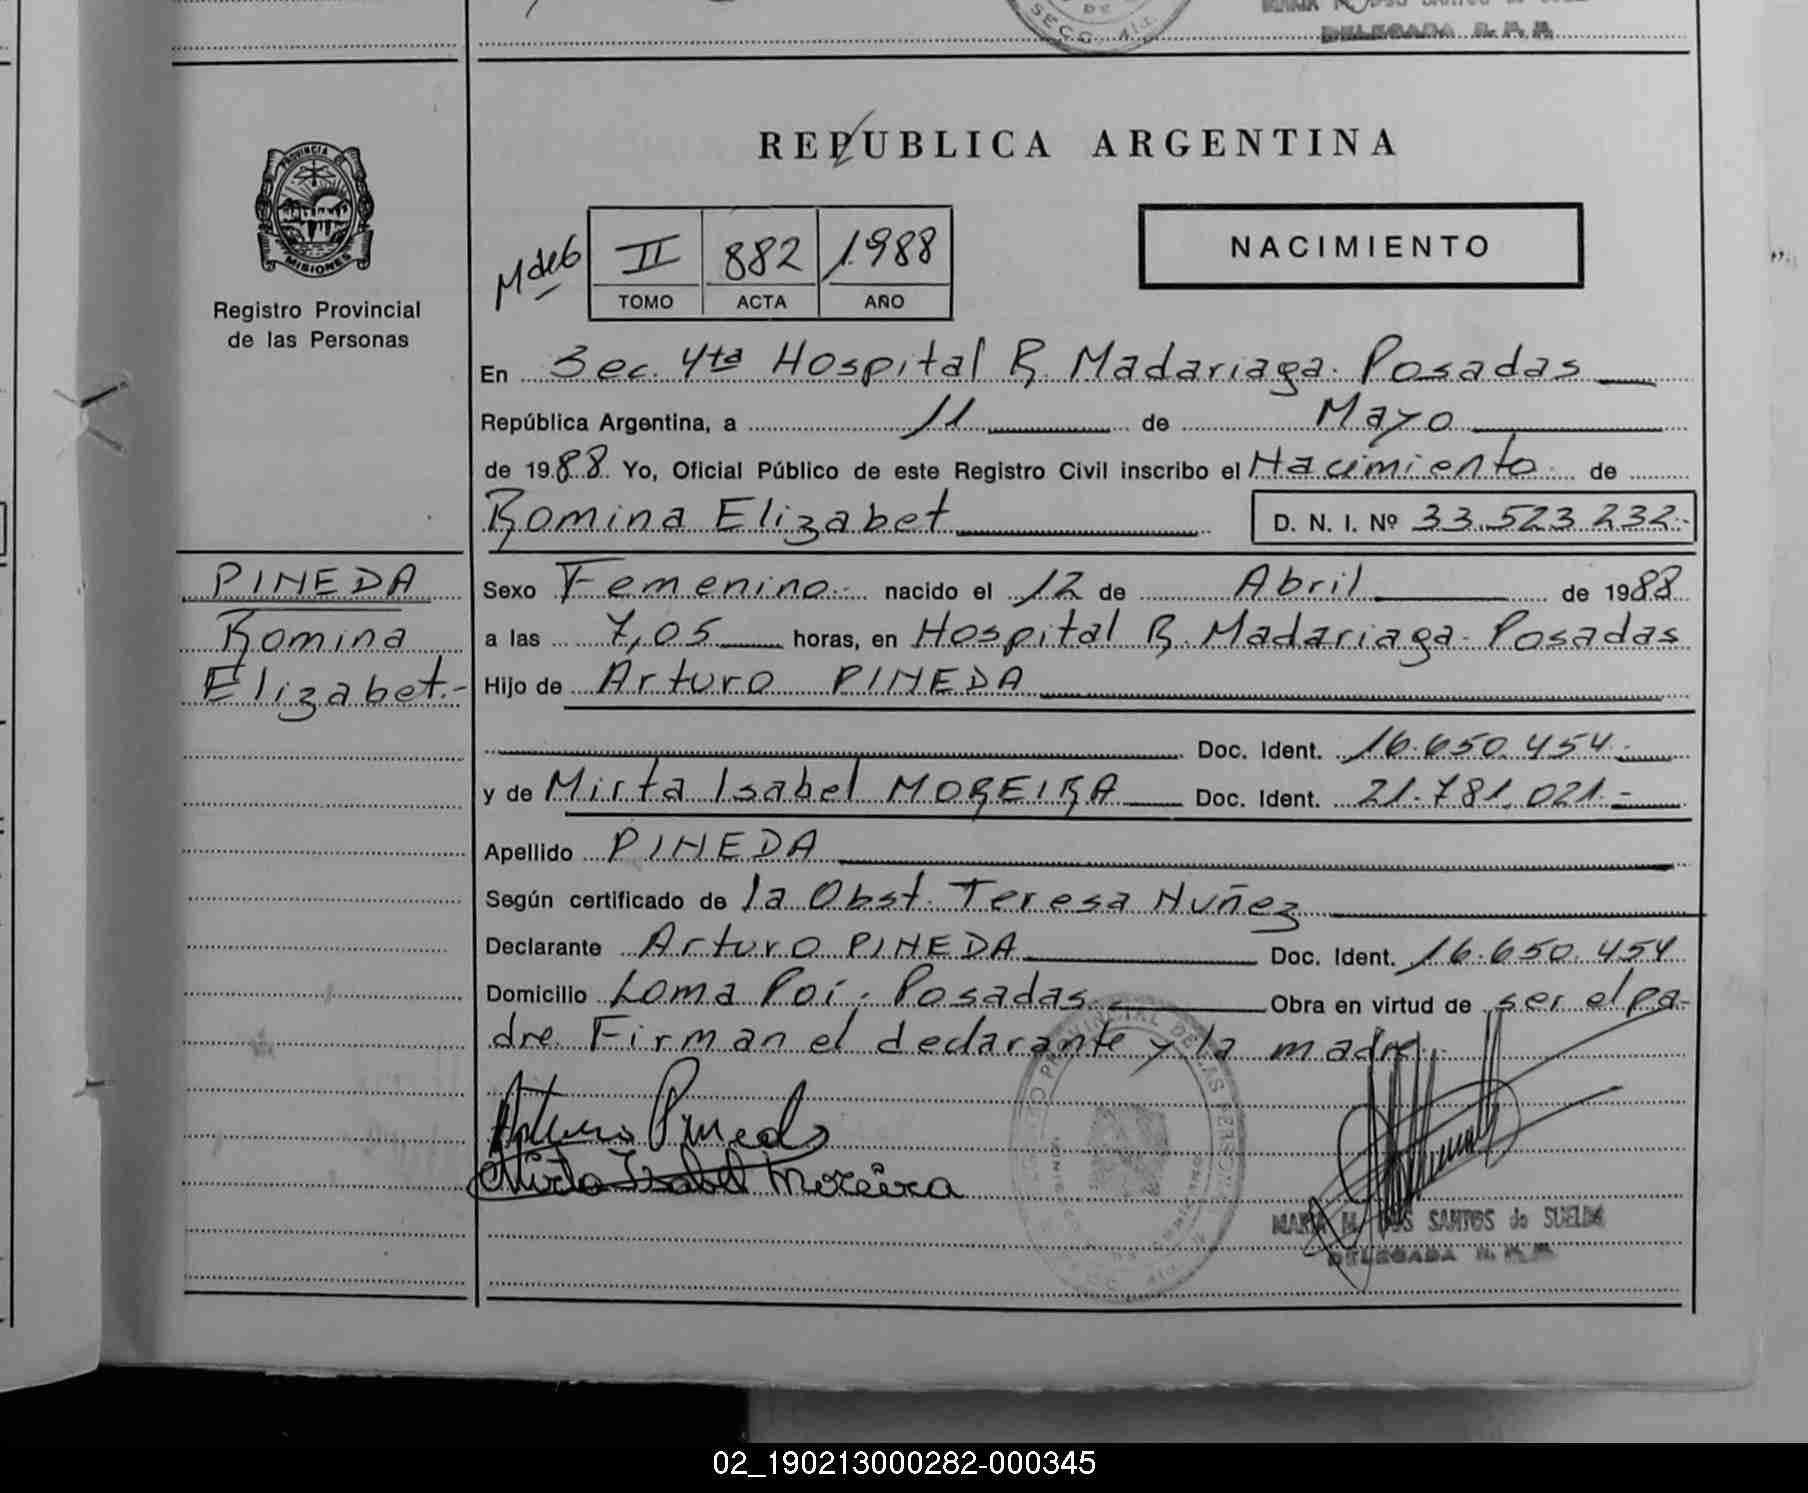 DELEGADA R. P. P.
SECC.
DE
REPUBLICA ARGENTINA
PROVINCIA DE
MISIONES
Registro Provincial
de las Personas
II 882 1988
TOMO ACTA AÑO
NACIMIENTO
En Sec. 4ta Hospital R. Madariaga. Posadas
República Argentina, a 11 de Mayo
de 1988 Yo, Oficial Público de este Registro Civil inscribo el Nacimiento de
Romina Elizabet D. N. I. Nº 33.523.232.-
PINEDA
Romina
Elizabet.-
Sexo Femenino.- nacido el 12 de Abril de 1988
a las 7,05 horas, en Hospital R. Madariaga. Posadas
Hijo de Arturo PINEDA
Doc. Ident. 16.650.454.-
y de Mirta Isabel MOREIRA Doc. Ident. 21.781.021.-
Apellido PINEDA
Según certificado de la Obst. Teresa Nuñez
Declarante Arturo PINEDA Doc. Ident. 16.650.454
Domicilio Loma Poi. Posadas. Obra en virtud de ser el pa-
dre. Firman el declarante y la madre.
Arturo Pineda
Mirta Isabel Moreira
MARIA M. DOS SANTOS de SUELDO
DELEGADA R. P. P.
02_190213000282-000345